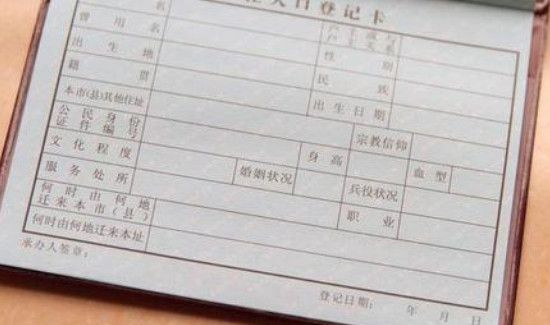 住人口登记卡
名
曾用名 性别
出生地 民族
籍贯 出生日期
本市(县)其他住址
公民身份证件编号 宗教信仰
文化程度 身高 血型
服务处所 婚姻状况 兵役状况
何时由何地迁来本市(县) 职业
何时由何地迁来本址
承办人签章:
登记日期: 年 月 日